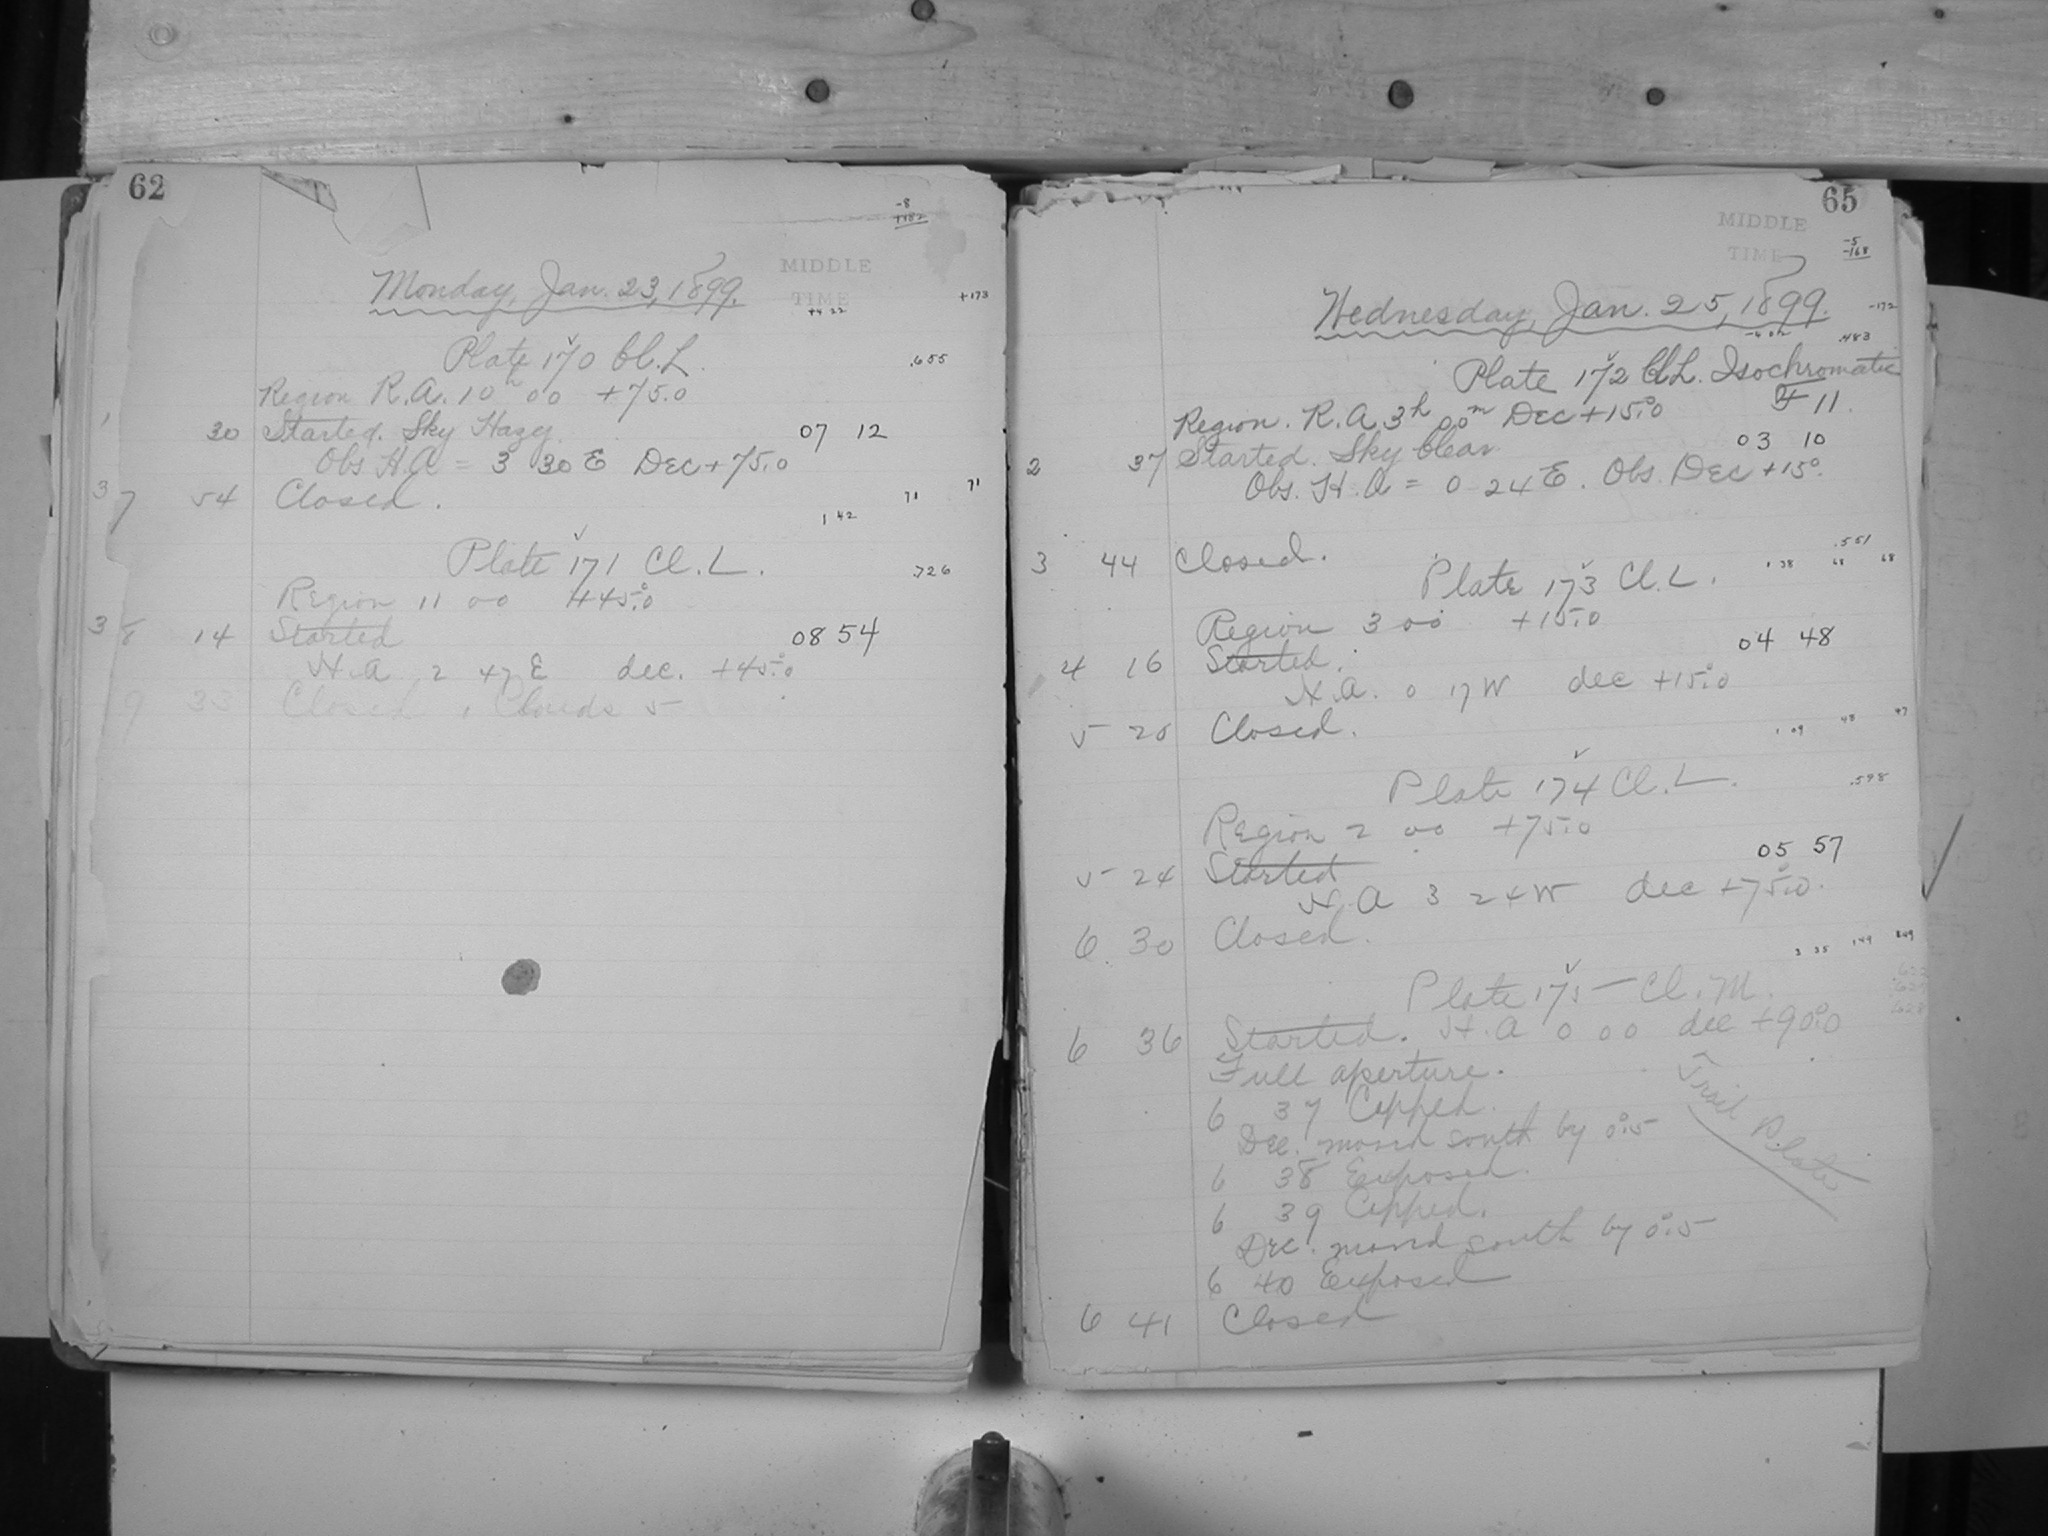 62
-8
MIDDLE
TIME
+173
Monday, Jan. 23, 1899.
+4 22
Plate 170 Cl. L.
.655
Region R.A. 10h 00 +75.0
30 Started. Sky Hazy 07 12
Obs H.A = 3 30 E Dec + 75.0
7 54 Closed.
71 71
1 42
Plate 171 Cl. L.
.726
Region 11 00 +45.0
14 Started 08 54
H.A 2 47 E dec. +45.0
9 Closed, Clouds 5
65
MIDDLE
TIME
-5
-168
Wednesday, Jan. 25, 1899.
-172
.483
Plate 172 Cl. L. Isochromatic
F 11.
Region. R.A. 3h 00m Dec +15.0
2 37 Started. Sky Clear 03 10
Obs. H.A = 0 24 E. Obs. Dec +15°.
3 44 Closed.
.551
1 38 68 68
Plate 173 Cl. L.
Region 3 00 +15.0
4 16 Started. 04 48
H.A. 0 17 W dec +15.0
5 20 Closed.
1 09 48 47
Plate 174 Cl. L.
.598
Region 2 00 +75.0
5 24 Started 05 57
H.A 3 24 W dec +75.0.
6 30 Closed.
Plate 175 Cl. M.
6 36 Started. H.A 0 00 dec +90.0
Full aperture.
Trail Plate
6 37 Capped.
Dec. moved south by 0.5
6 38 Exposed.
6 39 Capped.
Dec. moved south by 0.5
6 40 Exposed
6 41 Closed